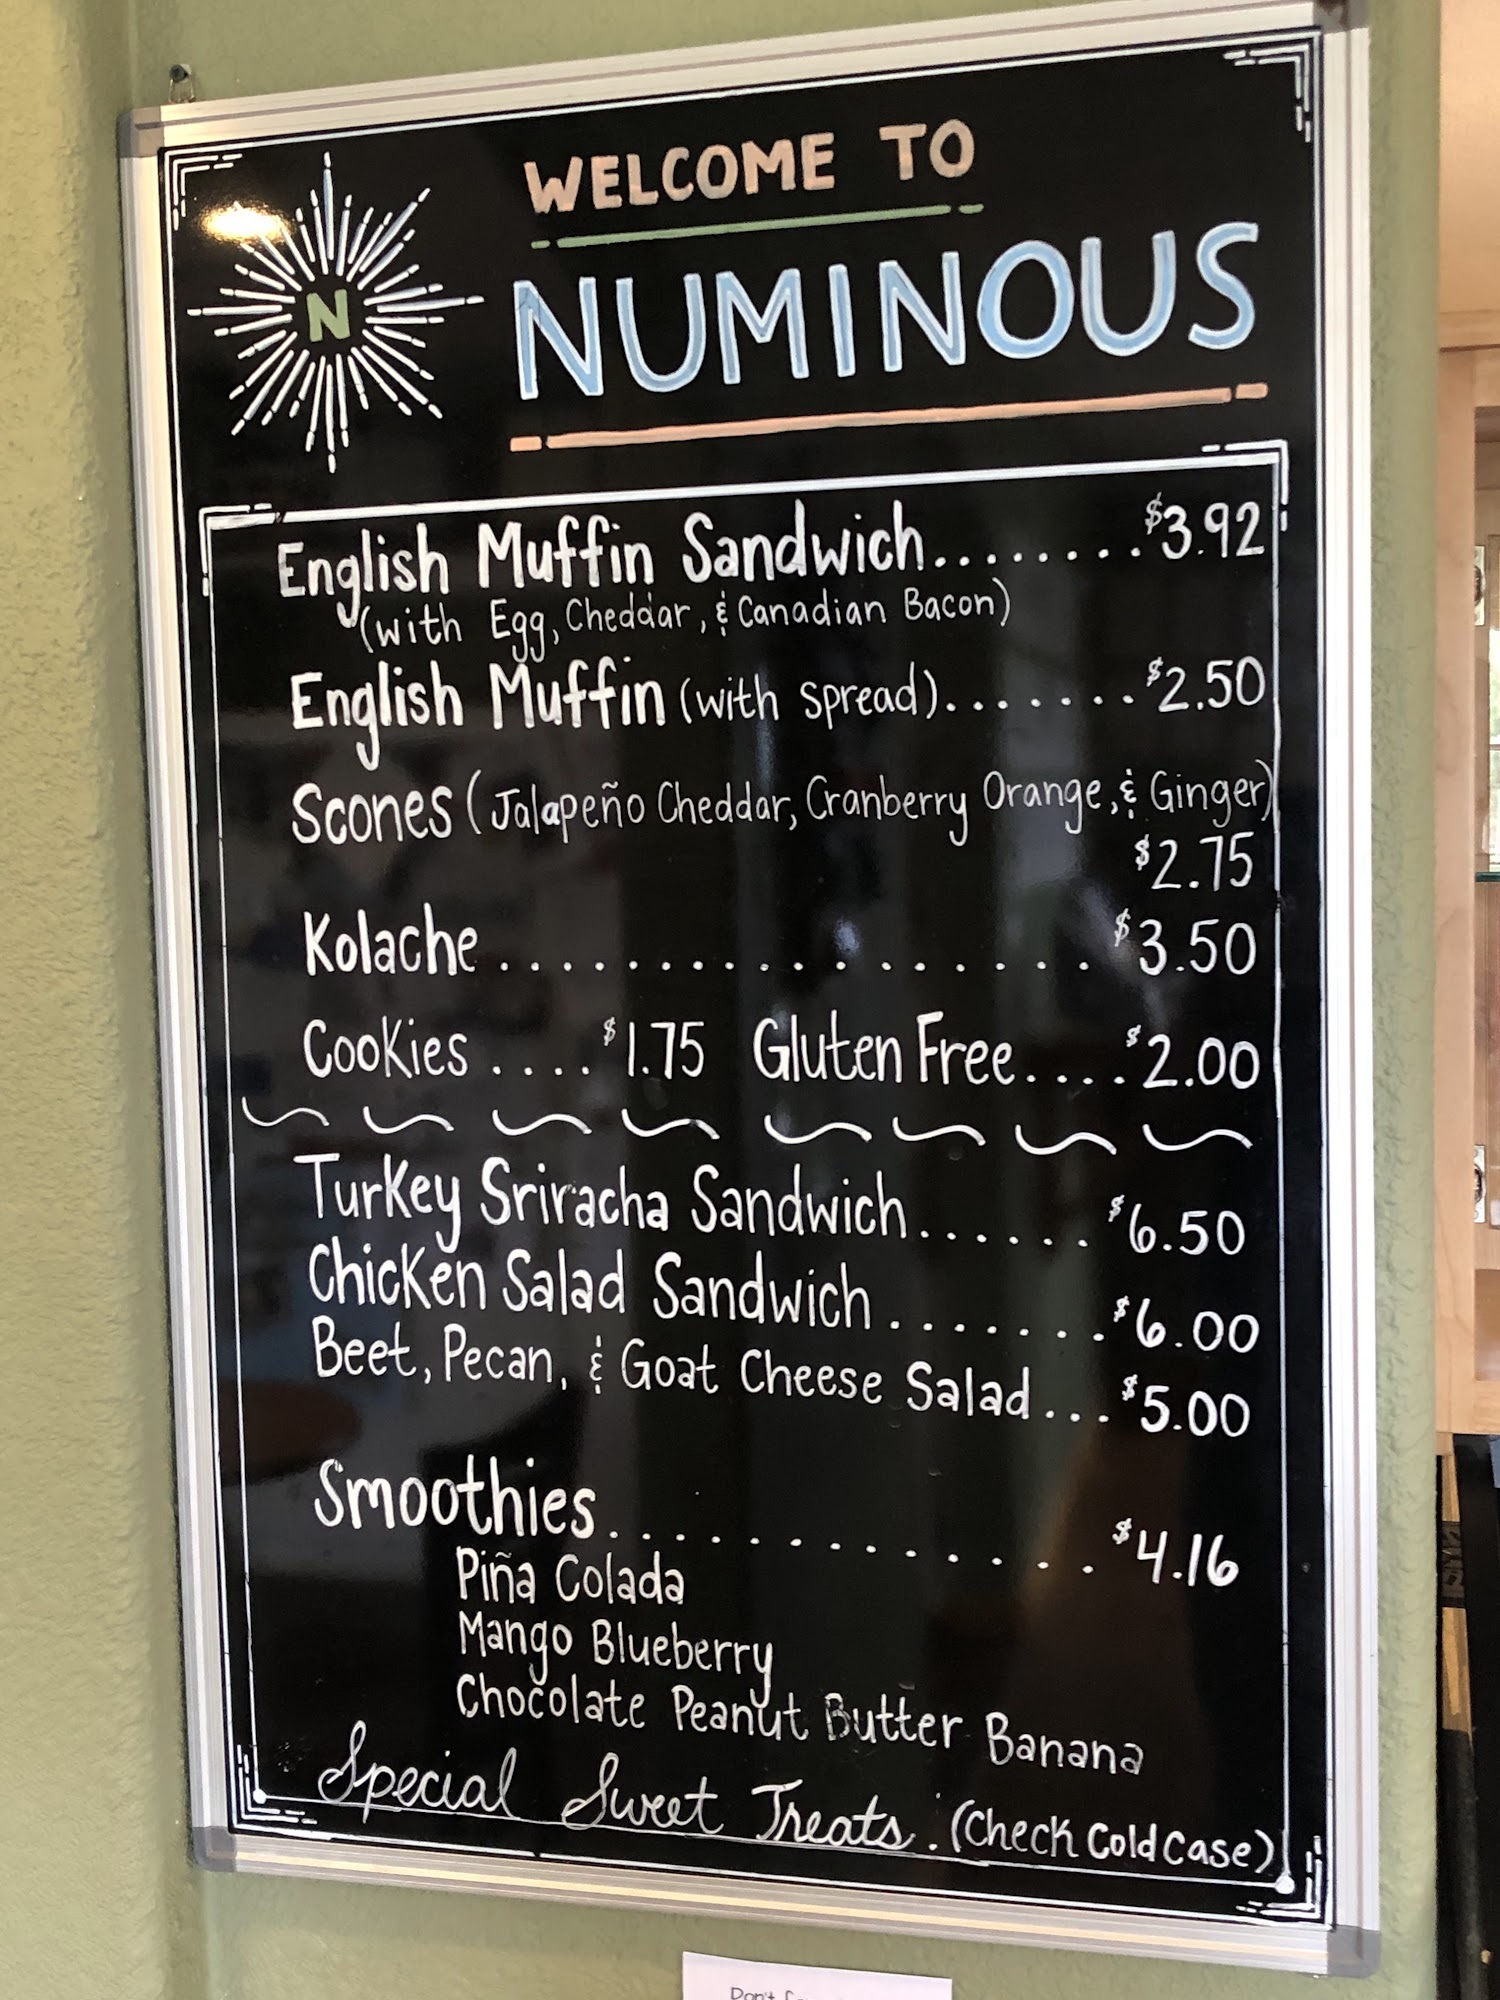 N
WELCOME TO
NUMINOUS
English Muffin Sandwich........$3.92
(with Egg, Cheddar, & Canadian Bacon)
English Muffin (with spread).......$2.50
Scones (Jalapeño Cheddar, Cranberry Orange, & Ginger)
$2.75
Kolache...................$3.50
Cookies....$1.75 Gluten Free....$2.00
Turkey Sriracha Sandwich......$6.50
Chicken Salad Sandwich.......$6.00
Beet, Pecan, & Goat Cheese Salad...$5.00
Smoothies..............$4.16
Piña Colada
Mango Blueberry
Chocolate Peanut Butter Banana
Special Sweet Treats: (Check Cold Case)
Don't